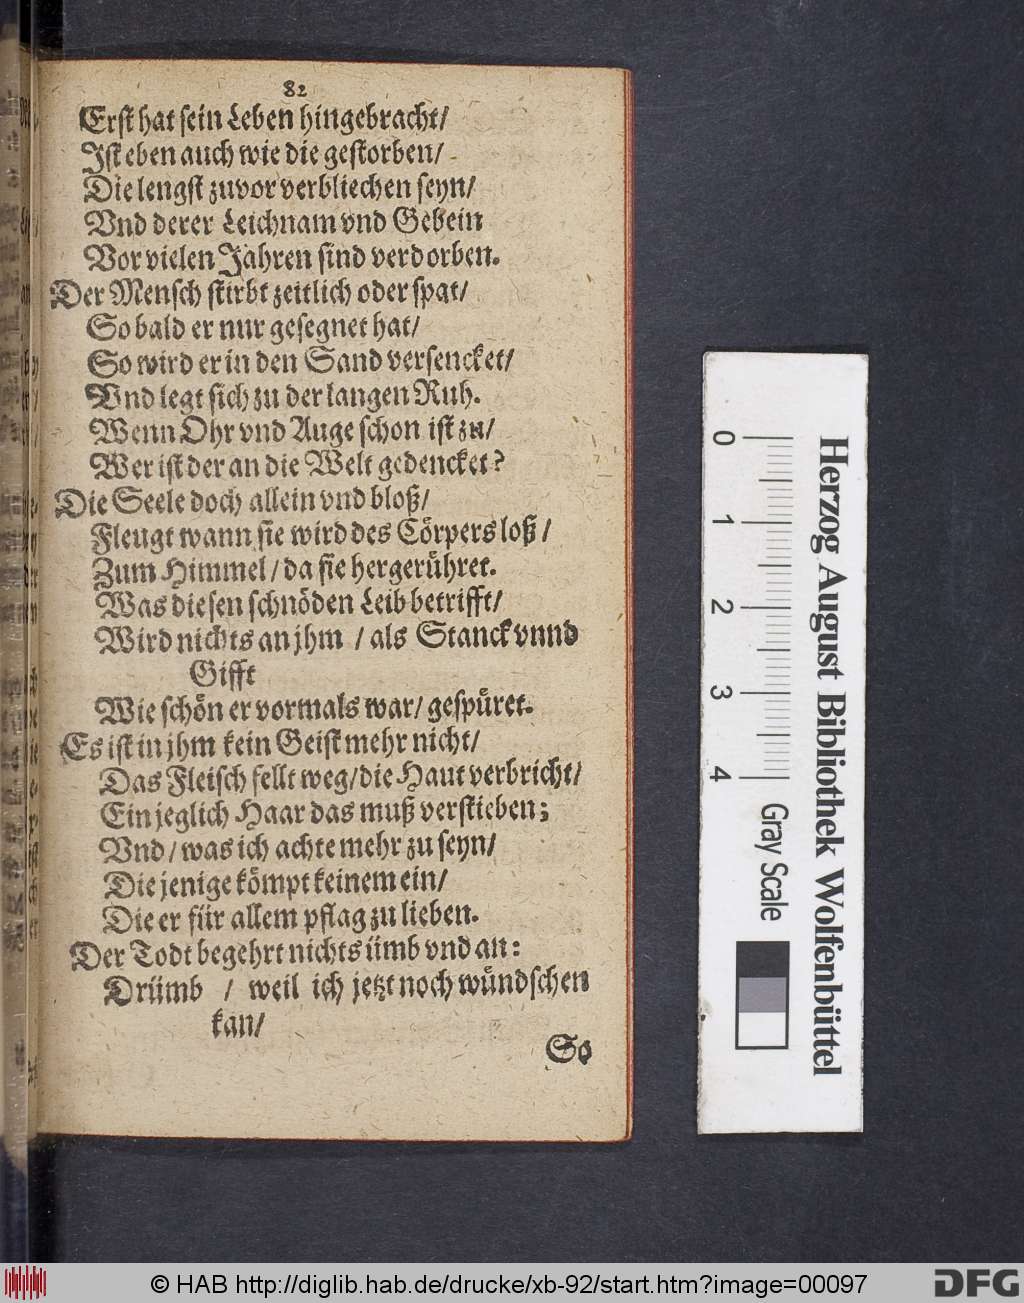 82
Erst hat sein Leben hingebracht/
Ist eben auch wie die gestorben/
Die lengst zuvor verbliechen seyn/
Vnd derer Leichnam vnd Gebein
Vor vielen Jahren sind verdorben.
Der Mensch stirbt zeitlich oder spat/
So bald er nur gesegnet hat/
So wird er in den Sand versencket/
Vnd legt sich zu der langen Ruh.
Wenn Ohr vnd Auge schon ist zu/
Wer ist der an die Welt gedencket?
Die Seele doch allein vnd bloß/
Fleugt wann sie wird des Cörpers loß/
Zum Himmel/ da sie hergerühret.
Was diesen schnöden Leib betrifft/
Wird nichts an jhm / als Stanck vnnd
Gifft
Wie schön er vormals war/ gespüret.
Es ist in jhm kein Geist mehr nicht/
Das Fleisch fellt weg/die Haut verbricht/
Ein jeglich Haar das muß verstieben;
Vnd/ was ich achte mehr zu seyn/
Die jenige kömpt keinem ein/
Die er für allem pflag zu lieben.
Der Todt begehrt nichts ümb vnd an:
Drümb / weil ich jetzt noch wündschen
kan/
So
Herzog August Bibliothek Wolfenbüttel
0 1 2 3 4
Gray Scale
© HAB http://diglib.hab.de/drucke/xb-92/start.htm?image=00097
DFG